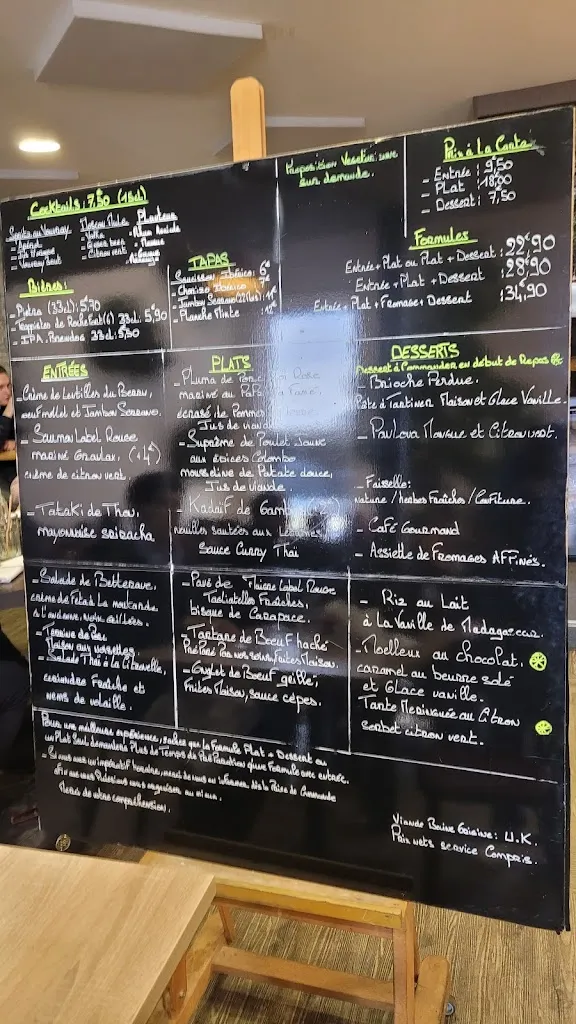 Cocktails: 7,50 (15cl)
- Apérol
- Ginger beer
- Citron vert
Proposition Végétarienne
sur demande.
Prix à La Carte
- Entrée : 9,50
- Plat : 18,00
- Dessert : 7,50
Formules
Entrée + Plat ou Plat + Dessert : 22€90
Entrée + Plat + Dessert : 28€90
Entrée + Plat + Fromage + Dessert : 34,90
Bières:
- Pietra (33cl): 5,70
- Trappistes de Rochefort (6) 33cl: 5,90
33cl: 5,50
TAPAS
- Saucisson Ibérico: 6€
- Chorizo Ibérico
- Jambon Serrano
- Planche Mixte
ENTRÉES
- Crème de Lentilles du Berry,
œuf mollet et Jambon Serrano.
- Saumon Label Rouge
mariné Gravlax, (+1€)
crème de citron vert.
- Tataki de Thon,
mayonnaise sriracha
- Salade de Betterave,
crème de Féta à La moutarde
à l'ancienne, Noix, œillères.
- Terrine de
Maison aux noisettes.
- Salade Thaï à La Citronnelle,
coriandre Fraîche et
nems de volaille.
PLATS
- Pluma de
mariné au
écrasé de Pommes
Jus de viande
- Suprême de Poulet Jaune
aux épices Colombo
mousseline de Patate douce,
Jus de viande.
- Kadaïf de Gambas
nouilles sautées aux Légumes
Sauce Curry Thaï
- Pavé de Label Rouge
Tagliatelles Fraîches,
bisque de Carapace.
- Tartare de Bœuf haché
Préparé Par nos soins, Frites Maison.
- Onglet de Bœuf grillé,
Frites Maison, sauce cèpes.
DESSERTS
Dessert à Commander en début de Repas
- Brioche Perdue,
Pâte à Tartiner Maison et Glace Vanille.
- Pavlova Mangue et Citron vert.
- Faisselle:
nature / herbes Fraîches / Confiture.
- Café Gourmand
- Assiette de Fromages AFFinés.
- Riz au Lait
à La Vanille de Madagascar.
- Moelleux au chocolat,
caramel au beurre salé
et Glace vanille.
Tarte Meringuée au Citron
sorbet citron vert.
Pour une meilleure expérience, sachez que la Formule Plat + Dessert ou
un Plat Seul demandera Plus de Temps de Préparation qu'une Formule avec entrée.
- Si vous avez un impératif horaire, merci de nous en informer dès la Prise de Commande
Afin que nous Puissions nous organiser au mieux.
Merci de votre compréhension.
Viande Bovine Origine: U.K.
Prix nets service Compris.